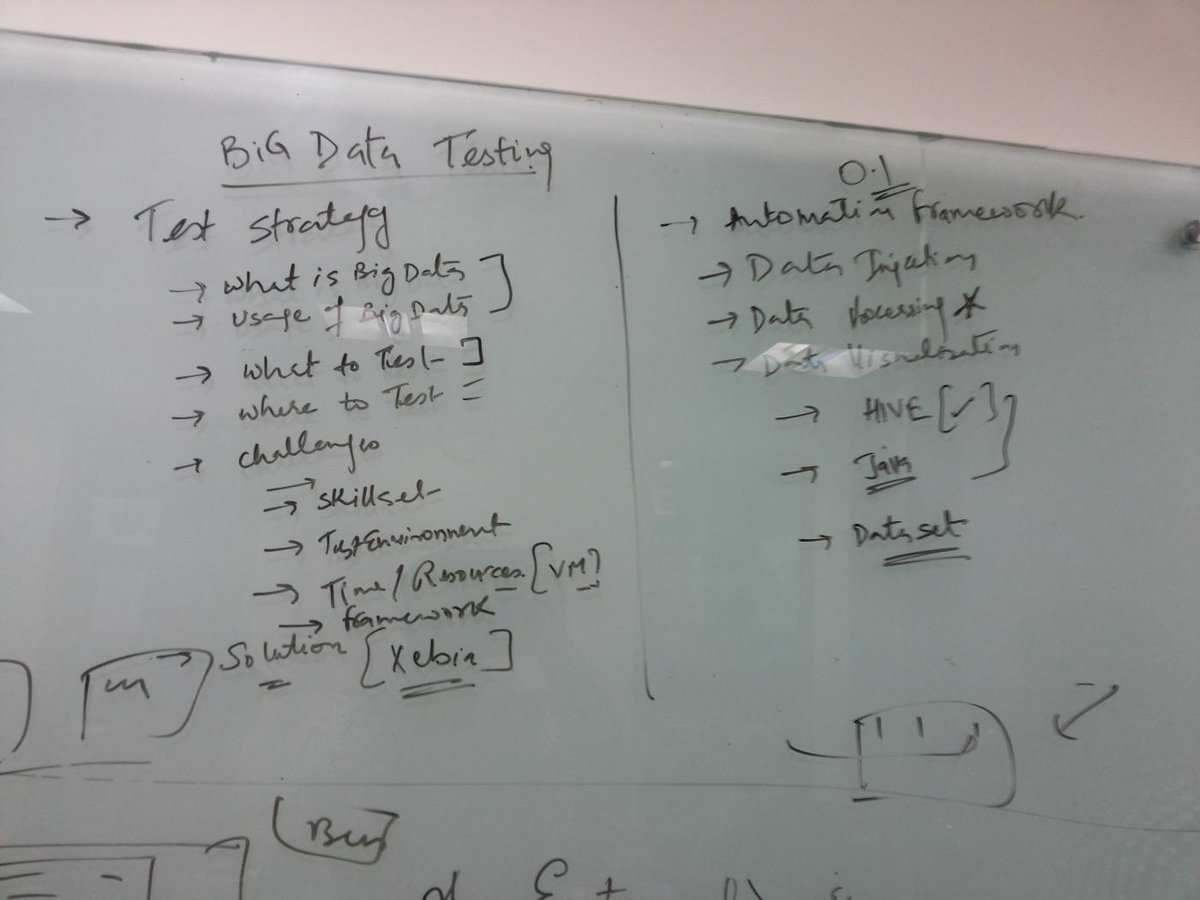 BiG Data Testing
→ Test Strategy
→ What is Big Data ]
→ Usage of Big Data
→ What to Test ]
→ Where to Test =
→ Challenges
→ Skillset
→ Test Environment
→ Time / Resources [VM]
→ framework
→ Solution [Xebia]
0.1
→ Automation framework.
→ Data Injection
→ Data Processing *
→ Data Visualization
→ HIVE [✓]
→ Java
→ Dataset